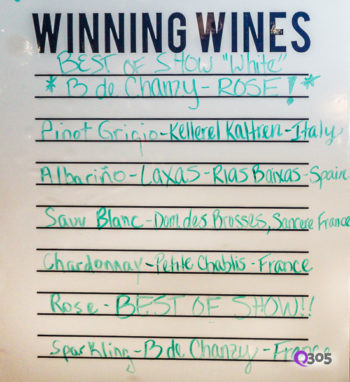 WINNING WINES
BEST OF SHOW "White"
* B de Chanzy - ROSE! *
Pinot Grigio - Kellerel Kaltren - Italy
Albariño - Laxas - Rias Baixas - Spain
Sauv Blanc - Dom des Brosses, Sancerre France
Chardonnay - Petite Chablis - France
Rose - BEST OF SHOW!!
Sparkling - B de Chanzy - France
Q305